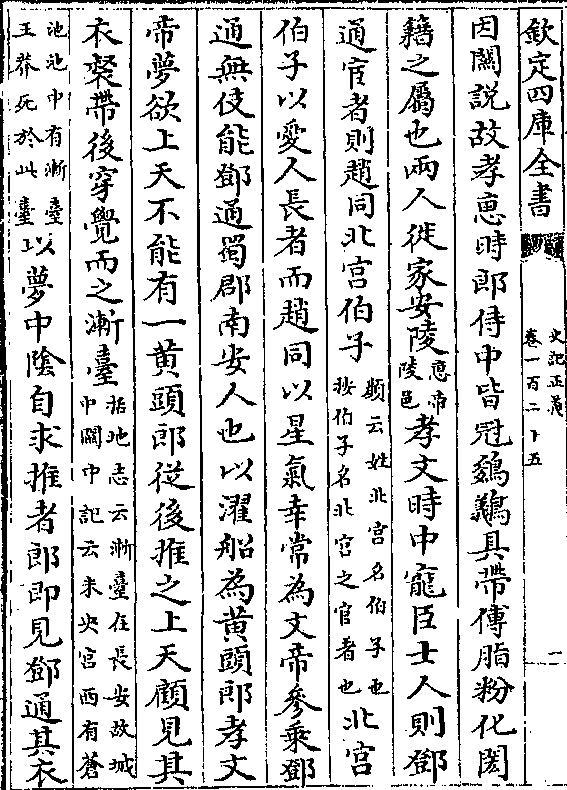 欽定四庫全書
史記正義
卷一百二十五
一
因關說故孝惠時郎侍中皆冠鵔鸃具帶傅脂粉化閎
籍之屬也兩人徙家安陵惠帝陵邑孝文時中寵臣士人則鄧
通宦者則趙同北宮伯子顔云姓北宮名伯子也按伯子名北宮之官者也北宮
伯子以愛人長者而趙同以星氣幸常為文帝參乘鄧
通無伎能鄧通蜀郡南安人也以濯船為黄頭郎孝文
帝夢欲上天不能有一黄頭郎從後推之上天顧見其
衣裻帶後穿覺而之漸臺括地志云漸臺在長安故城中關中記云未央宮西有蒼
池池中有漸臺王莽死於此臺以夢中隂自求推者郎即見鄧通其衣